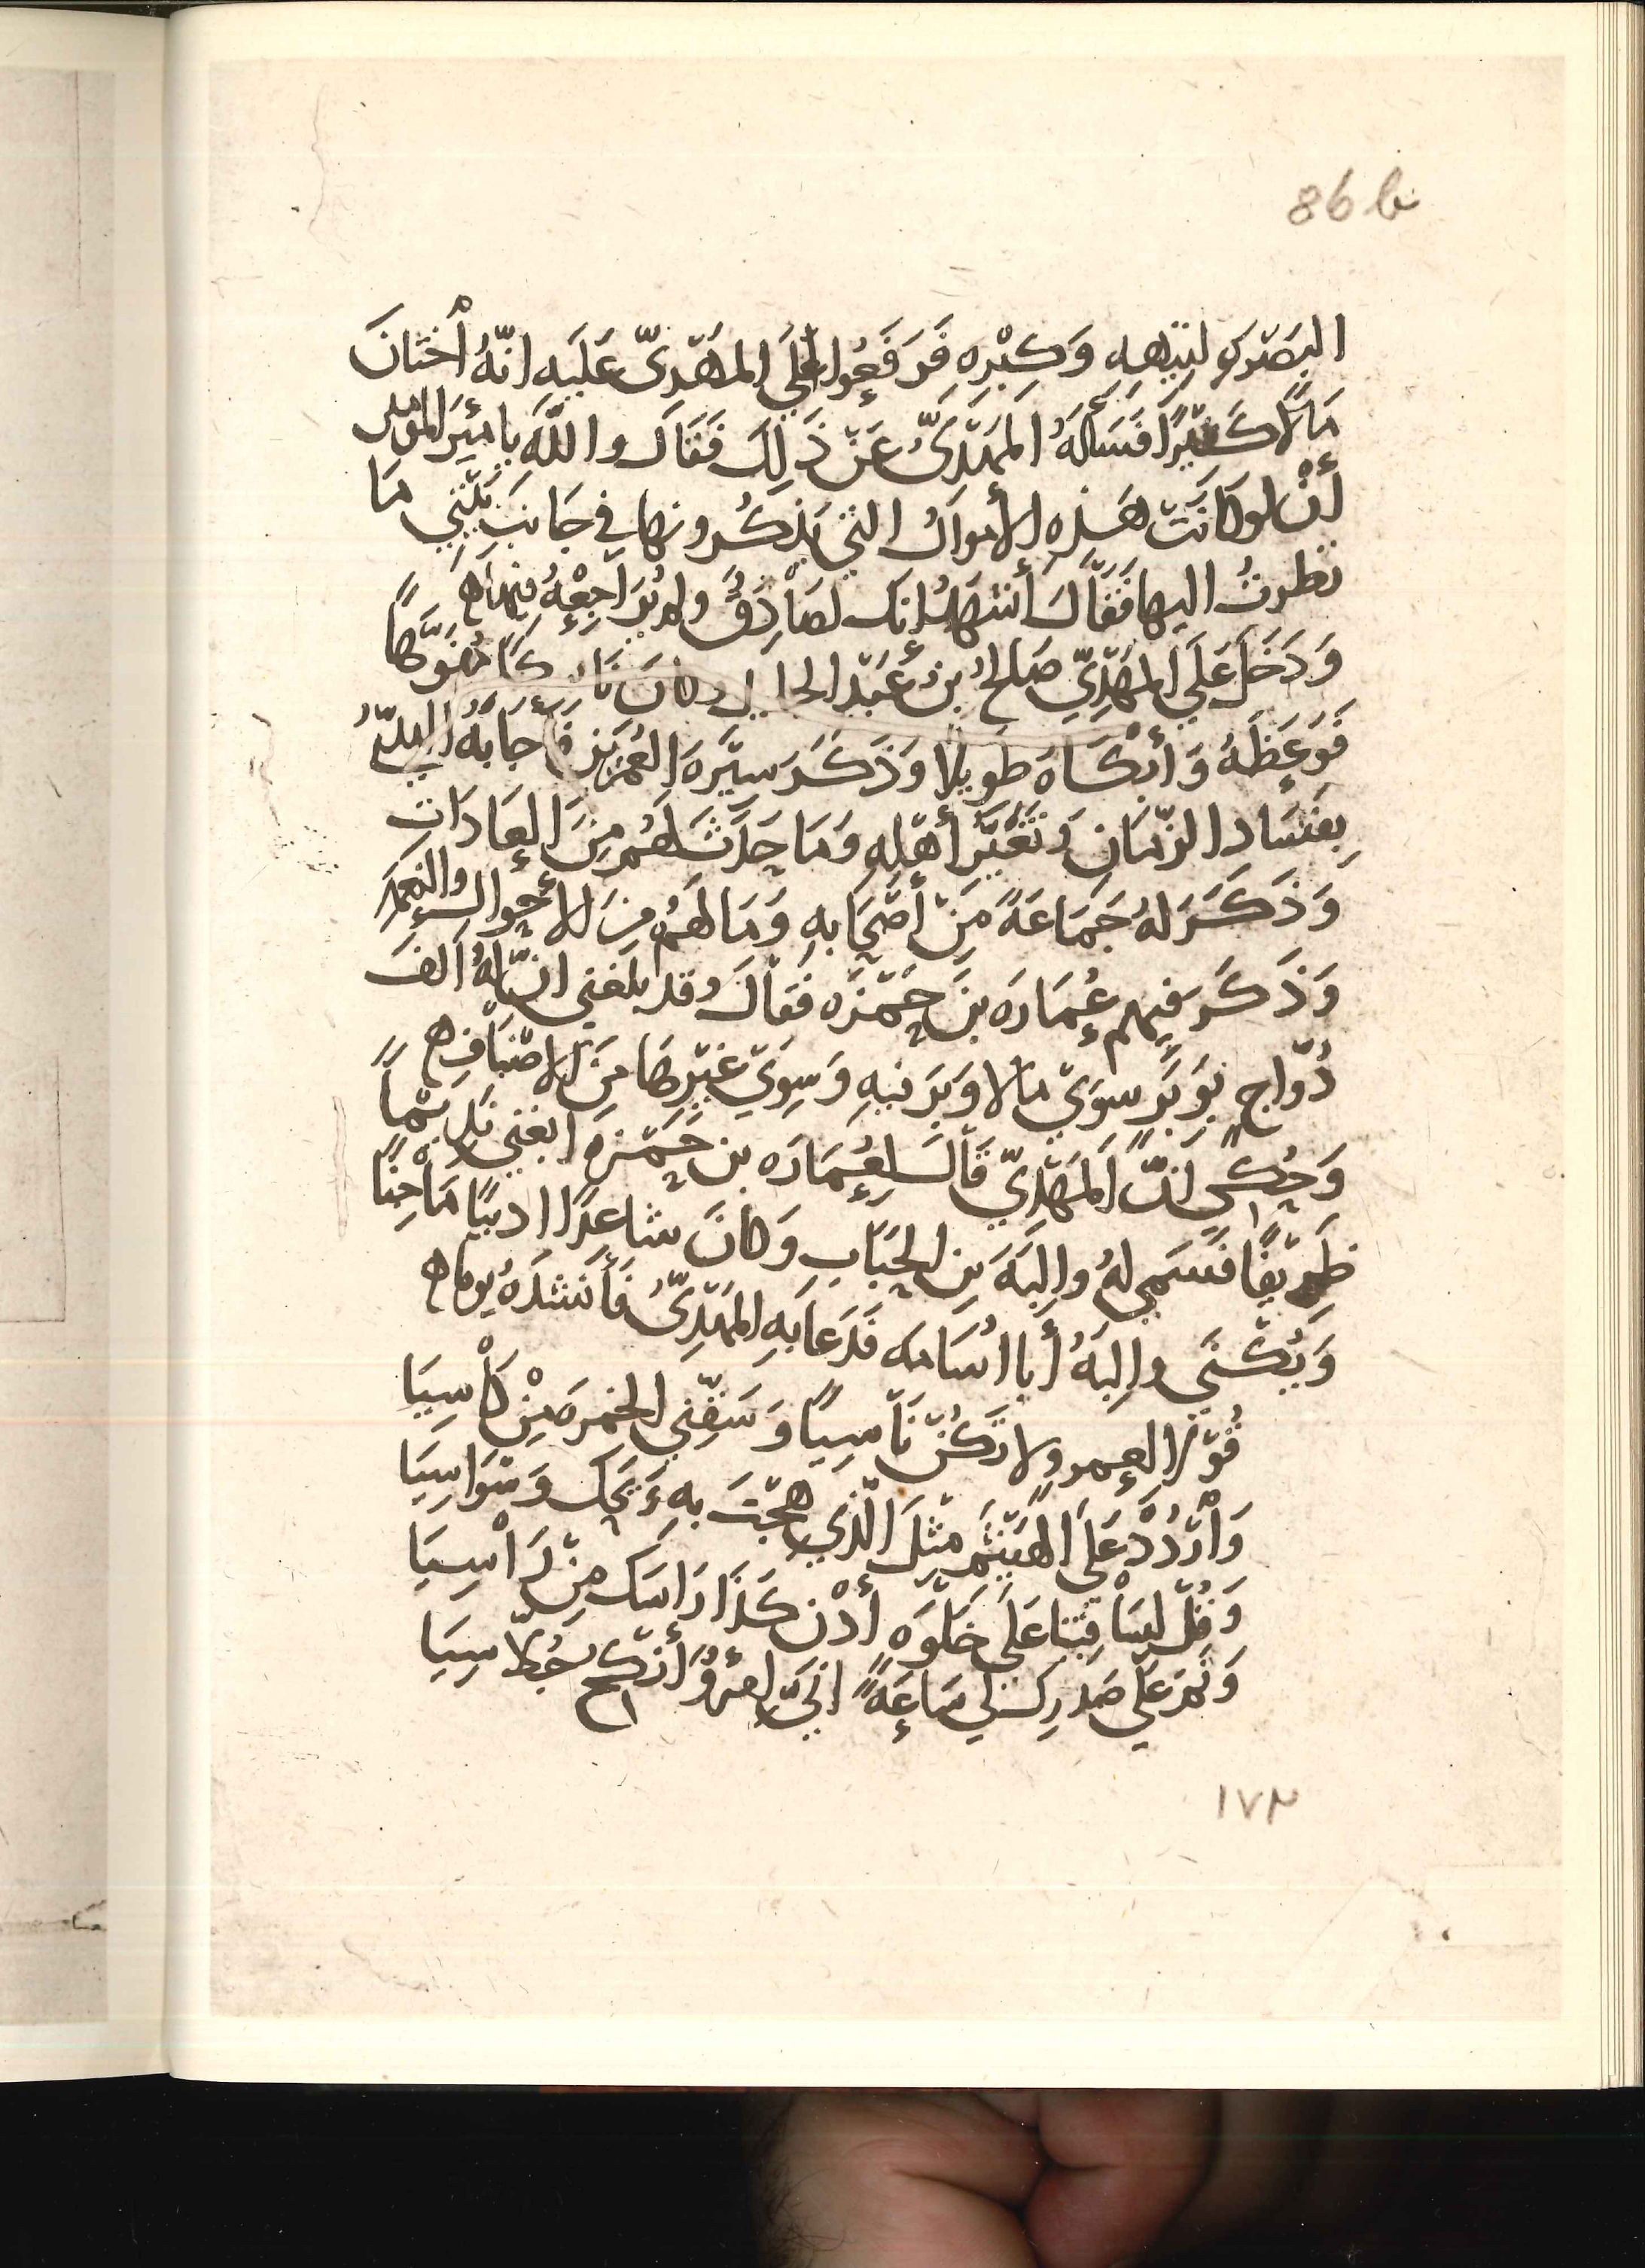 86 b
البصرى لتيهه وَكِبْرِهِ فَرَفَعُوا عَلَي المَهْدِىّ عَلَيه انّهُ أخْتَانَ
مَالًا كَثيرًا فَسَألهُ المَهْدِىُّ عَنْ ذَلِكَ فَقَاَل واللّهِ يا أميَر المؤمنين
أنْ لو كانَتْ هَذِهِ الأموالُ التِي يَذكُرونها في جَانبِ بَيْتِي مَا
نظرتُ اليها فَقَالَ أشْهَدُ إنك لصَادِقٌ ولم يُرَاجِعْهُ فيها ه
وَدَخَلَ عَلَي المَهْدِيّ صَالحُ بنُ عَبْد الجليل وكانَ نَاسِكًا مُفَوَّهًا
فَوَعَظَهُ وَأبْكَاهُ طويلًا وَذَكَرَ سيَرةَ العُمَرَيْنِ فأجَابَهُ المهديّ
بِفَسَادِ الزّمَانِ وَتَغَيُّر أهْلِهِ وَمَا حَدَثَ لَهُم مِنَ العَادَاتِ
وَذَكَرَ لهُ جَمَاعَةً مِنْ أصْحَابهِ وَمَا لهُم مِنَ الأحْوالِ والنعم
وَذَكَرَ فيهم عُمَارَه بنَ حَمْزَه فقالَ وقد بلغني انّ لهُ ألفَ
دُوّاجٍ بوَبَرٍ سِوَيْ مالا وَبَر فيهِ وَسِوَيْ غَيْرِهَا مِنَ الاصْنَافِ ه
وَحُكِيَ انّ المَهْدِيّ قالَ لِعُمَارَه بن حَمْزَه ابغني نَديمًا
ظَرِيفًا فَسَمي لهُ والِبَةَ بنَ الحُبَابِ وَكانَ شاعِرًا اديبًا مَاْجِنًا
وَيُكْنَي والِبَةُ أبا اُسَامه فَدَعَا بَهِ المَهْدِىُّ فَأنْشَدَهُ يوما ه
قُوْلا لعمرو لا تَكُنْ نَاسِيًا وَسَقِّنِي الخمرَ مِنْ كَأسِيَا
وَارْدُدْ عَلَي الهَيْثَم مثْلَ الّذِي هِجْتَ بهِ وَيْحَك وَسْوَاسِيَا
وَقُلْ لِسَاقِيْنا عَلَي خَلْوَه أدْنِ كَذَا رَاسَك مِنْ رَاسِيَا
وَنَمْ عَلَي صَدرِك لي سَاعَةً انِّي امرؤُ أنْكِحُ جُلاّسِيَا
١٧٣